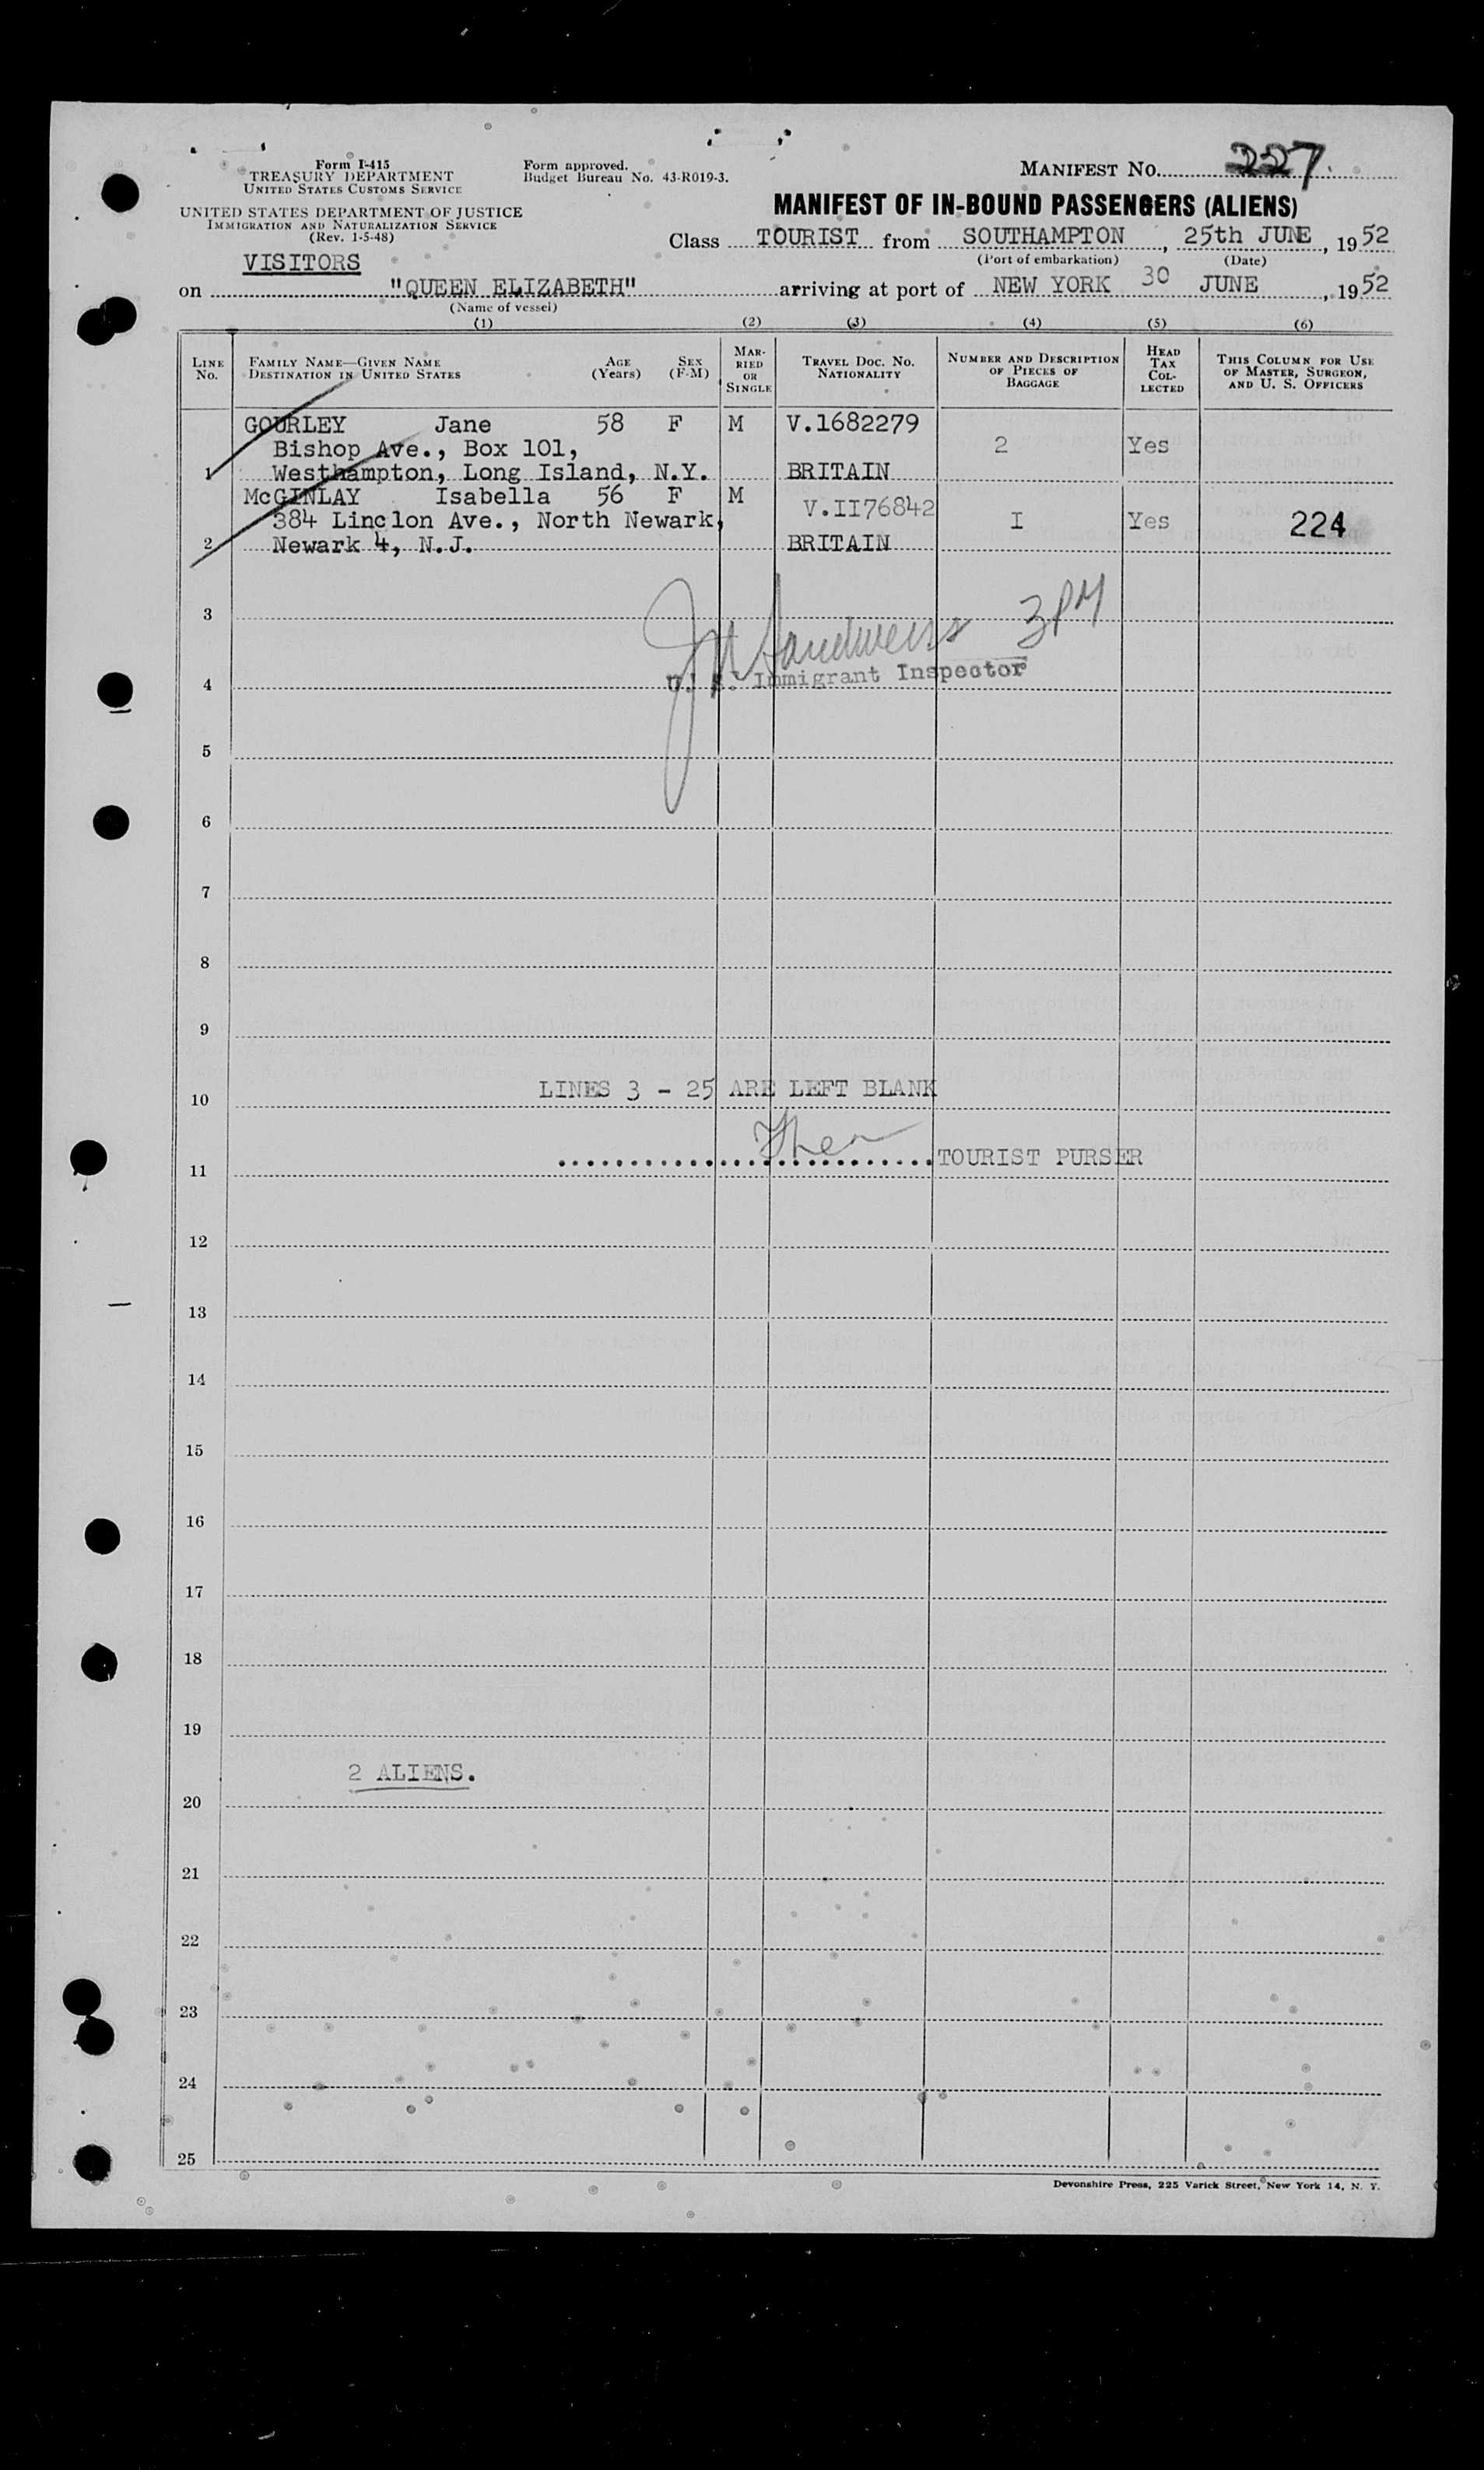 Form I-415
TREASURY DEPARTMENT
UNITED STATES CUSTOMS SERVICE
UNITED STATES DEPARTMENT OF JUSTICE
IMMIGRATION AND NATURALIZATION SERVICE
(Rev. 1-5-48)
Form approved.
Budget Bureau No. 43-R019-3.
MANIFEST NO. 227
MANIFEST OF IN-BOUND PASSENGERS (ALIENS)
Class TOURIST from SOUTHAMPTON, 25th JUNE, 1952
(Port of embarkation) (Date)
VISITORS
on "QUEEN ELIZABETH" arriving at port of NEW YORK 30 JUNE, 1952
(Name of vessel)
(1) (2) (3) (4) (5) (6)
LINE NO. FAMILY NAME—GIVEN NAME DESTINATION IN UNITED STATES AGE (Years) SEX (F-M) MARRIED OR SINGLE TRAVEL DOC. NO. NATIONALITY NUMBER AND DESCRIPTION OF PIECES OF BAGGAGE HEAD TAX COLLECTED THIS COLUMN FOR USE OF MASTER, SURGEON, AND U. S. OFFICERS
GOURLEY Jane 58 F M V.1682279
Bishop Ave., Box 101, 2 Yes
1 Westhampton, Long Island, N.Y. BRITAIN
McGINLAY Isabella 56 F M V.II76842
384 Linclon Ave., North Newark, I Yes 224
2 Newark 4, N.J. BRITAIN
3
3 PM
4 U. S. Immigrant Inspector
5
6
7
8
9
LINES 3 - 25 ARE LEFT BLANK
10
TOURIST PURSER
11
12
13
14
15
16
17
18
19
2 ALIENS.
20
21
22
23
24
25
Devonshire Press, 225 Varick Street, New York 14, N. Y.